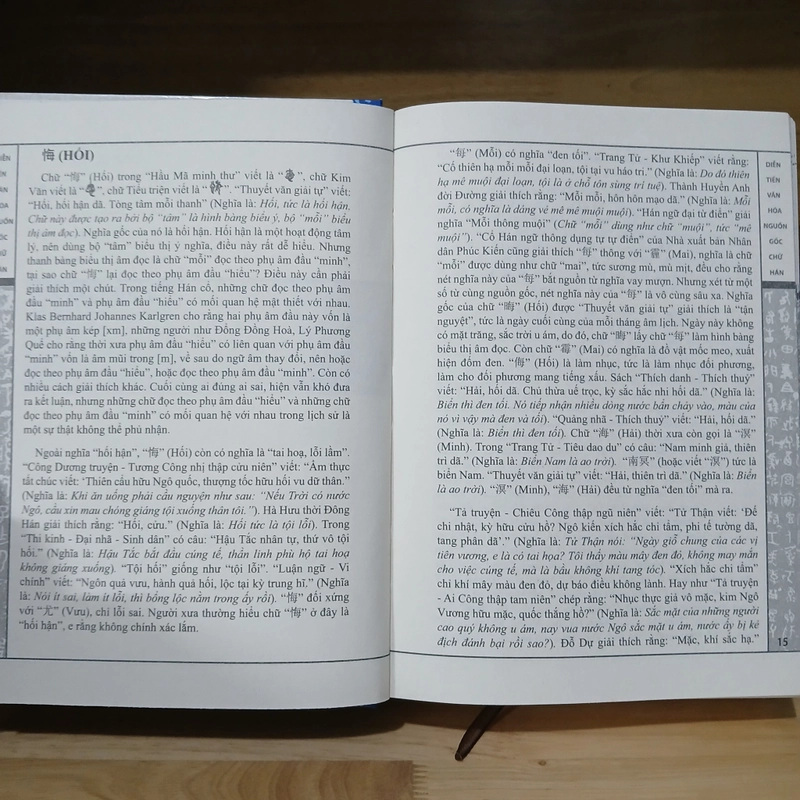 悔 (HỐI)
Chữ "悔" (Hối) trong "Hầu Mã minh thư" viết là " ", chữ Kim
Văn viết là " ", chữ Tiểu triện viết là " ". "Thuyết văn giải tự" viết:
"Hối, hối hận dã. Tòng tâm mỗi thanh" (Nghĩa là: Hối, tức là hối hận.
Chữ này được tạo ra bởi bộ "tâm" là hình bàng biểu ý, bộ "mỗi" biểu
thị âm đọc). Nghĩa gốc của nó là hối hận. Hối hận là một hoạt động tâm
lý, nên dùng bộ "tâm" biểu thị ý nghĩa, điều này rất dễ hiểu. Nhưng
thanh bàng biểu thị âm đọc là chữ "mỗi" đọc theo phụ âm đầu "minh",
tại sao chữ "悔" lại đọc theo phụ âm đầu "hiểu"? Điều này cần phải
giải thích một chút. Trong tiếng Hán cổ, những chữ đọc theo phụ âm
đầu "minh" và phụ âm đầu "hiểu" có mối quan hệ mật thiết với nhau.
Klas Bernhard Johannes Karlgren cho rằng hai phụ âm đầu này vốn là
một phụ âm kép [xm], những người như Đổng Đồng Hoà, Lý Phương
Quế cho rằng thời xưa phụ âm đầu "hiểu" có liên quan với phụ âm đầu
"minh" vốn là âm mũi trong [m], về sau do ngữ âm thay đổi, nên hoặc
đọc theo phụ âm đầu "hiểu", hoặc đọc theo phụ âm đầu "minh". Còn có
nhiều cách giải thích khác. Cuối cùng ai đúng ai sai, hiện vẫn khó đưa
ra kết luận, nhưng những chữ đọc theo phụ âm đầu "hiểu" và những chữ
đọc theo phụ âm đầu "minh" có mối quan hệ với nhau trong lịch sử là
một sự thật không thể phủ nhận.
Ngoài nghĩa "hối hận", "悔" (Hối) còn có nghĩa là "tai hoạ, lỗi lầm".
"Công Dương truyện - Tương Công nhị thập cửu niên" viết: "Ẩm thực
tất chúc viết: 'Thiên cẩu hữu Ngô quốc, thượng tốc hữu hối vu dữ thân."
(Nghĩa là: Khi ăn uống phải cầu nguyện như sau: "Nếu Trời có nước
Ngô, cầu xin mau chóng giáng tội xuống thân tôi."). Hà Hưu thời Đông
Hán giải thích rằng: "Hối, cữu." (Nghĩa là: Hối tức là tội lỗi). Trong
"Thi kinh - Đại nhã - Sinh dân" có câu: "Hậu Tắc nhân tự, thứ vô tội
hối." (Nghĩa là: Hậu Tắc bắt đầu cúng tế, thần linh phù hộ tai hoạ
không giáng xuống). "Tội hối" giống như "tội lỗi". "Luận ngữ - Vi
chính" viết: "Ngôn quả vưu, hành quả hối, lộc tại kỳ trung hĩ." (Nghĩa
là: Nói ít sai, làm ít lỗi, thì bổng lộc nằm trong ấy rồi). "悔" đối xứng
với "尤" (Vưu), chỉ lỗi sai. Người xưa thường hiểu chữ "悔" ở đây là
"hối hận", e rằng không chính xác lắm.
"每" (Mỗi) có nghĩa "đen tối". "Trang Tử - Khư Khiếp" viết rằng:
"Cố thiên hạ mỗi mỗi đại loạn, tội tại vu háo tri." (Nghĩa là: Do đó thiên
hạ mê muội đại loạn, tội là ở chỗ tôn sùng trí tuệ). Thành Huyền Anh
đời Đường giải thích rằng: "Mỗi mỗi, hôn hôn mạo dã." (Nghĩa là: Mỗi
mỗi, có nghĩa là dáng vẻ mê mê muội muội). "Hán ngữ đại từ điển" giải
nghĩa "Mỗi thông muội" (Chữ "mỗi" dùng như chữ "muội", tức "mê
muội"). "Cổ Hán ngữ thông dụng tự tự điển" của Nhà xuất bản Nhân
dân Phúc Kiến cũng giải thích "每" thông với "霾" (Mai), nghĩa là chữ
"mỗi" được dùng như chữ "mai", tức sương mù, mù mịt, đều cho rằng
nét nghĩa này của "每" bắt nguồn từ nghĩa vay mượn. Nhưng xét từ một
số từ cùng nguồn gốc, nét nghĩa này của "每" là vô cùng sâu xa. Nghĩa
gốc của chữ "晦" (Hối) được "Thuyết văn giải tự" giải thích là "tận
nguyệt", tức là ngày cuối cùng của mỗi tháng âm lịch. Ngày này không
có mặt trăng, sắc trời u ám, do đó, chữ "晦" lấy chữ "每" làm hình bàng
biểu thị âm đọc. Còn chữ "霉" (Mai) có nghĩa là đồ vật mốc meo, xuất
hiện đốm đen. "侮" (Hối) là làm nhục, tức là làm nhục đối phương,
làm cho đối phương mang tiếng xấu. Sách "Thích danh - Thích thuỷ"
viết: "Hải, hối dã. Chủ thừa uế trọc, kỳ sắc hắc nhi hối dã." (Nghĩa là:
Biển thì đen tối. Nó tiếp nhận nhiều dòng nước bẩn chảy vào, màu của
nó vì vậy mà đen và tối). "Quảng nhã - Thích thuỷ" viết: "Hải, hối dã."
(Nghĩa là: Biển thì đen tối). Chữ "海" (Hải) thời xưa còn gọi là "溟"
(Minh). Trong "Trang Tử - Tiêu dao du" có câu: "Nam minh giả, thiên
trì dã." (Nghĩa là: Biển Nam là ao trời). "南冥" (hoặc viết "溟") tức là
biển Nam. "Thuyết văn giải tự" viết: "Hải, thiên trì dã." (Nghĩa là: Biển
là ao trời). "溟" (Minh), "海" (Hải) đều từ nghĩa "đen tối" mà ra.
"Tả truyện - Chiêu Công thập ngũ niên" viết: "Tử Thận viết: 'Đế
chi nhật, kỳ hữu cữu hồ? Ngô kiến xích hắc chi tẩm, phi tế tường dã,
tang phân dã'." (Nghĩa là: Tử Thận nói: "Ngày giỗ chung của các vị
tiên vương, e là có tai họa? Tôi thấy màu mây đen đỏ, không may mắn
cho việc cúng tế, mà là bầu không khí tang tóc). "Xích hắc chi tẩm"
chỉ khí mây màu đen đỏ, dự báo điều không lành. Hay như "Tả truyện
- Ai Công thập tam niên" chép rằng: "Nhục thực giả vô mặc, kim Ngô
Vương hữu mặc, quốc thắng hồ?" (Nghĩa là: Sắc mặt của những người
cao quý không u ám, nay vua nước Ngô sắc mặt u ám, nước ấy bị kẻ
địch đánh bại rồi sao?). Đỗ Dự giải thích rằng: "Mặc, khí sắc hạ."
DIỄN
TIẾN
VĂN
HÓA
NGUỒN
GỐC
CHỮ
HÁN
15